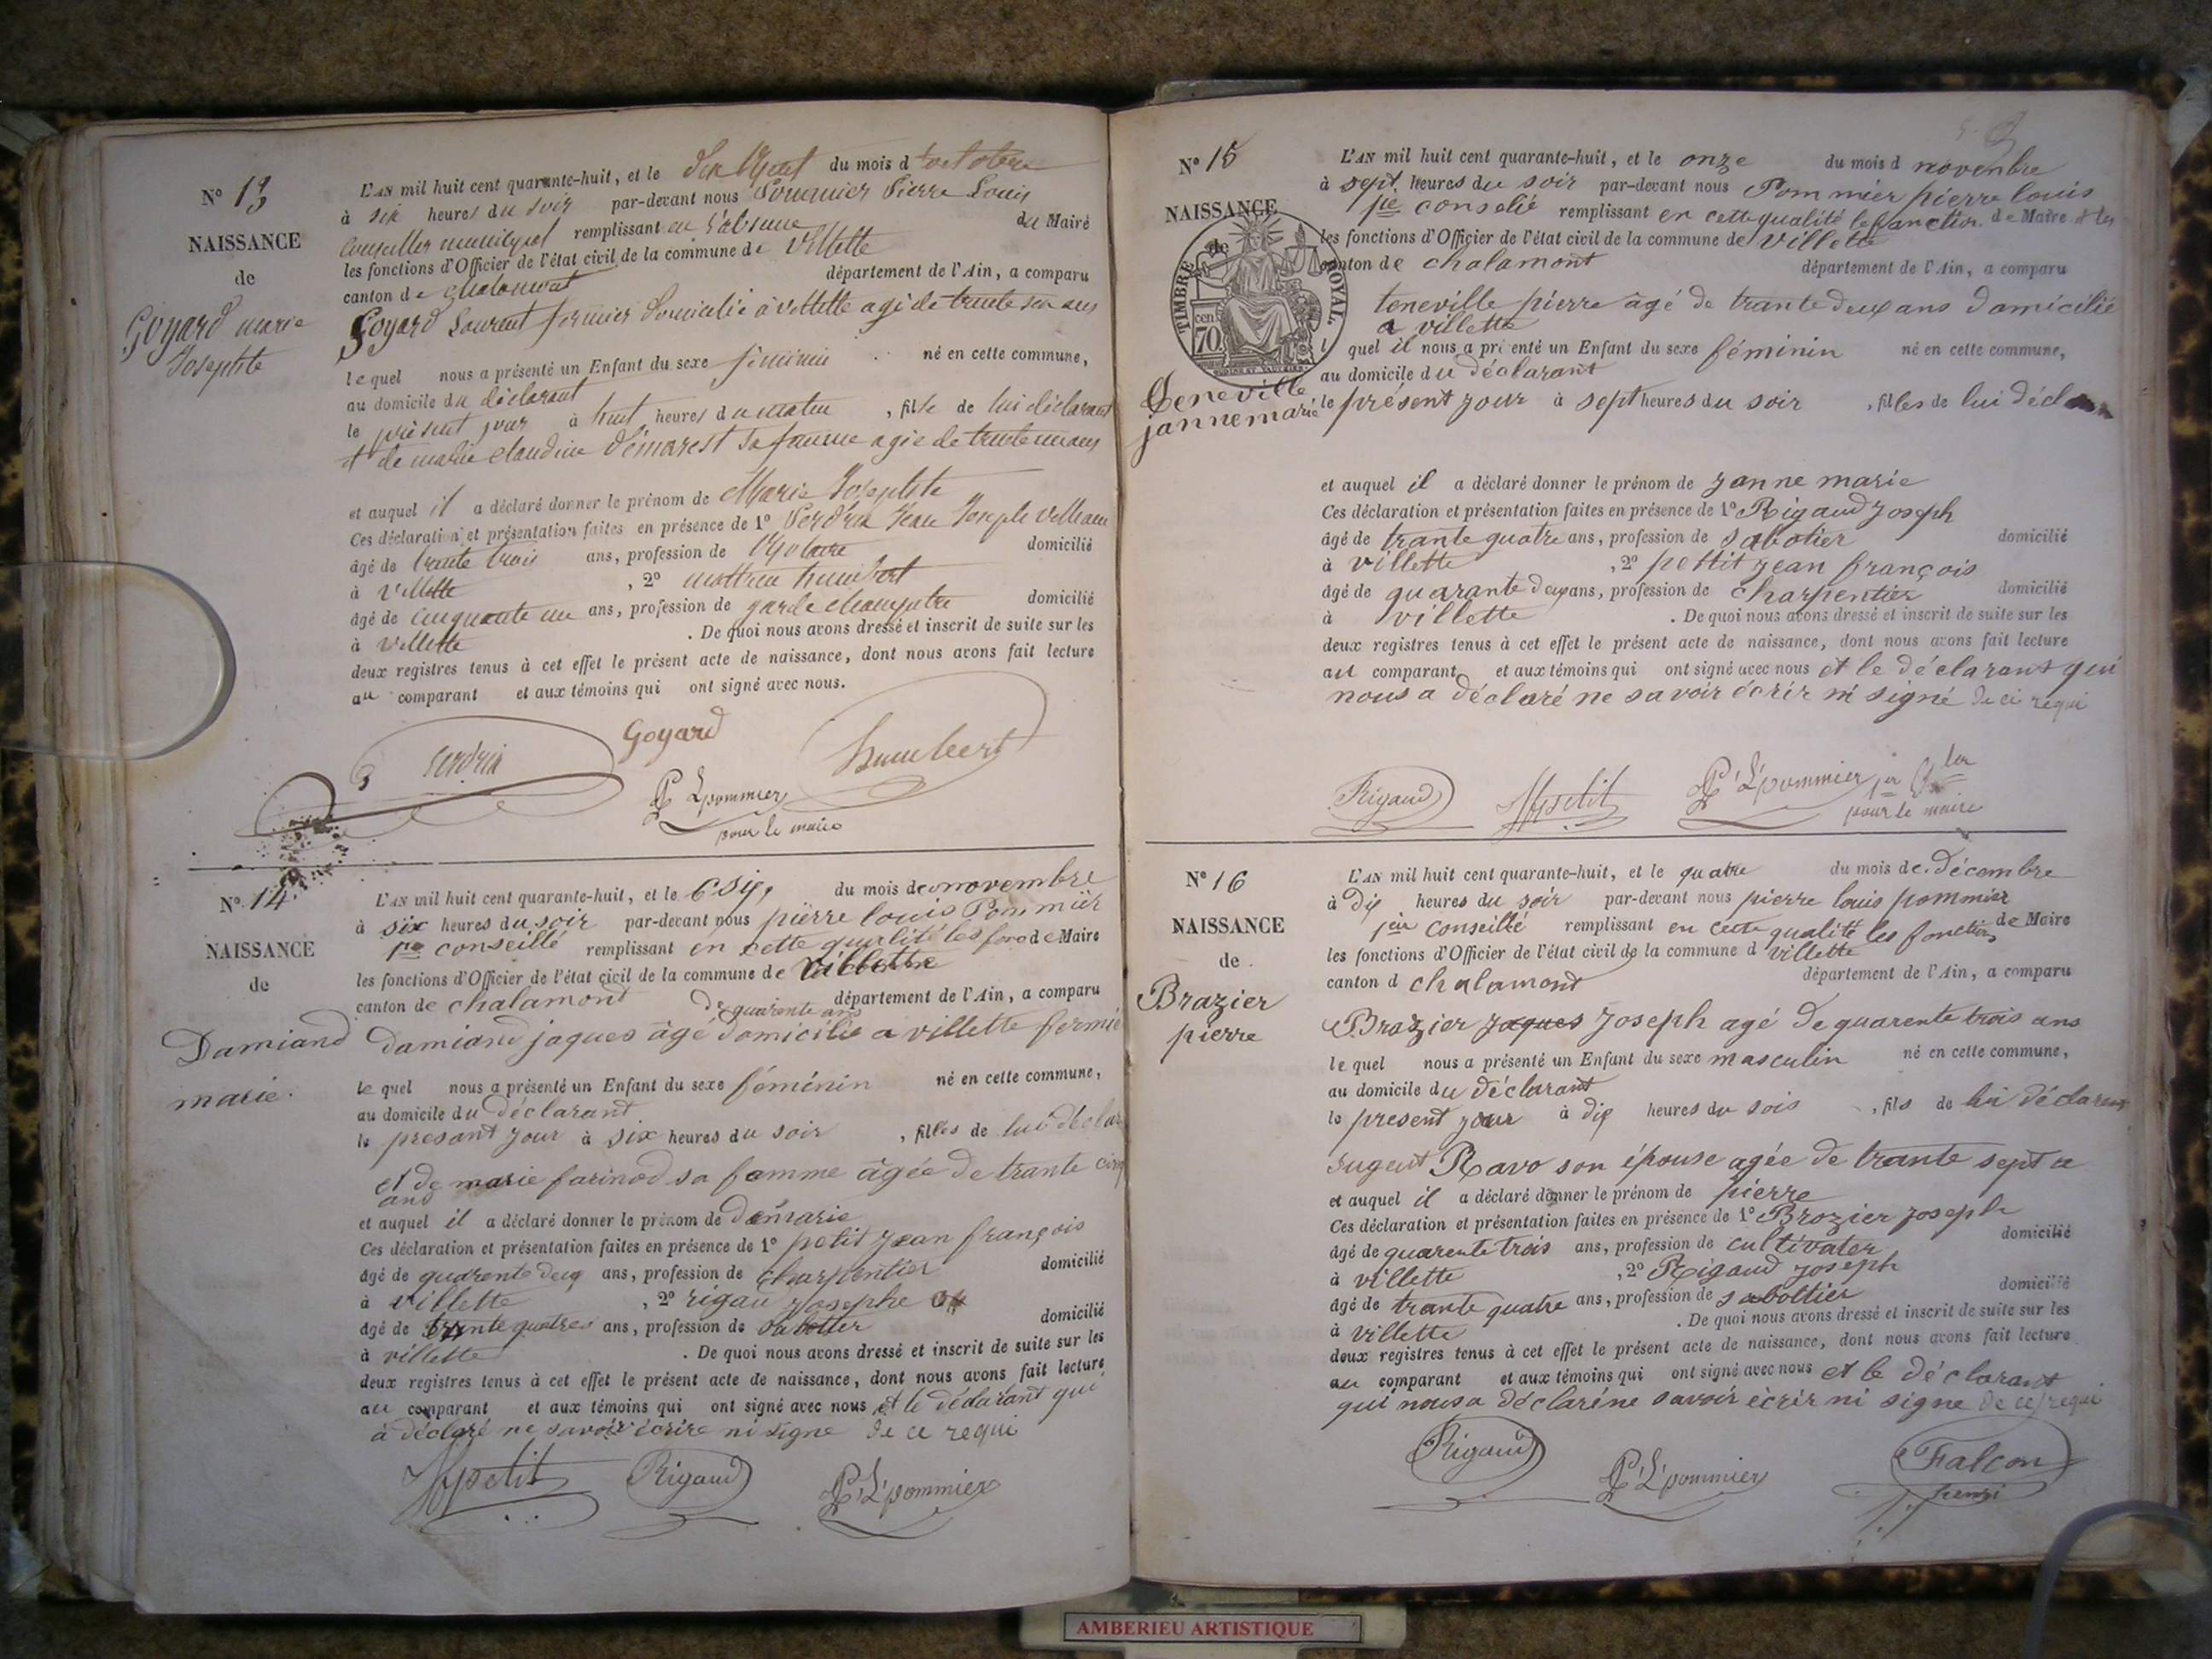 N° 13
NAISSANCE
de
Goyard marie
Josephte
L'AN mil huit cent quarante-huit, et le dix Sept du mois d'octobre
à six heures du soir par-devant nous Pommier Pierre Louis
Conseiller municipal remplissant en l'absence du Maire
les fonctions d'Officier de l'état civil de la commune de Villette
canton de chalamont département de l'Ain, a comparu
Goyard Laurent fermier domicilié à villette agé de trente six ans
lequel nous a présenté un Enfant du sexe féminin né en cette commune,
au domicile du déclarant
le présent jour à huit heures du matin , fille de lui déclarant
et de marie claudine Démarest sa femme agée de trente un ans
et auquel il a déclaré donner le prénom de Marie Josephte
Ces déclaration et présentation faites en présence de 1° Perdrix Jean Joseph
âgé de trente trois ans, profession de domicilié
à Villette , 2° humbert
âgé de cinquante un ans, profession de garde champêtre domicilié
à Villette . De quoi nous avons dressé et inscrit de suite sur les
deux registres tenus à cet effet le présent acte de naissance, dont nous avons fait lecture
au comparant et aux témoins qui ont signé avec nous.
Perdrix Goyard humbert
P. L. pommier
pour le maire
N° 14.
NAISSANCE
de
Damiand
marie.
L'AN mil huit cent quarante-huit, et le du mois de novembre
à six heures du soir par-devant nous pierre louis Pommiér
1er conseillé remplissant en cette qualité les de Maire
les fonctions d'Officier de l'état civil de la commune de villette
canton de chalamont département de l'Ain, a comparu
de quarente ans
damiand jaques âgé domicilié a villette fermie
lequel nous a présenté un Enfant du sexe féminin né en cette commune,
au domicile du déclarant
le presant jour à six heures du soir , filles de lui déclar
et de marie farinod sa femme âgée de trante cinq
ans
et auquel il a déclaré donner le prénom de marie
Ces déclaration et présentation faites en présence de 1° petit jean françois
âgé de quarente deuq ans, profession de charpentier domicilié
à villette , 2° rigau josephe
âgé de trante quatres ans, profession de sabotier domicilié
à villette . De quoi nous avons dressé et inscrit de suite sur les
deux registres tenus à cet effet le présent acte de naissance, dont nous avons fait lecture
au comparant et aux témoins qui ont signé avec nous et le déclarant qui
à déclaré ne savoir écrire ni signe de ce requi
petit Rigaud P. L. pommier
N° 15
NAISSANCE
de
TIMBRE ROYAL
70 cen
teneville
janne marie
L'AN mil huit cent quarante-huit, et le onze du mois d novembre
à sept heures du soir par-devant nous Pommier pierre louis
1er conselié remplissant en cette qualité le fonction de Maire et les
les fonctions d'Officier de l'état civil de la commune de villette
canton de chalamont département de l'Ain, a comparu
teneville pierre âgé de trante deux ans domicilié
a villette
lequel il nous a présenté un Enfant du sexe féminin né en cette commune,
au domicile du déclarant
le présent jour à sept heures du soir , filles de lui décla
et auquel il a déclaré donner le prénom de janne marie
Ces déclaration et présentation faites en présence de 1° Rigaud joseph
âgé de trante quatre ans, profession de sabotier domicilié
à villette , 2° pettit jean françois
âgé de quarante deux ans, profession de charpentier domicilié
à villette . De quoi nous avons dressé et inscrit de suite sur les
deux registres tenus à cet effet le présent acte de naissance, dont nous avons fait lecture
au comparant et aux témoins qui ont signé avec nous et le déclarant qui
nous a déclaré ne savoir écrir ni signé de ci requi
Rigaud petit P. L. pommier 1er
pour le maire
N° 16
NAISSANCE
de
Brazier
pierre
L'AN mil huit cent quarante-huit, et le quatre du mois de décembre
à dix heures du soir par-devant nous pierre louis pommier
1er conseillé remplissant en cette qualité les fonctions de Maire
les fonctions d'Officier de l'état civil de la commune d villette
canton d chalamond département de l'Ain, a comparu
Brazier jaques joseph agé de quarente trois ans
lequel nous a présenté un Enfant du sexe masculin né en cette commune,
au domicile du déclarant
le present jour à dix heures du sois , fils de lui déclarent
Ravo son épouse agée de trante sept a
et auquel il a déclaré donner le prénom de pierre
Ces déclaration et présentation faites en présence de 1° Brozier joseph
âgé de quarente trois ans, profession de cultivater domicilié
à villette , 2° Rigaud joseph
âgé de trante quatre ans, profession de saboltier domicilié
à villette . De quoi nous avons dressé et inscrit de suite sur les
deux registres tenus à cet effet le présent acte de naissance, dont nous avons fait lecture
au comparant et aux témoins qui ont signé avec nous et le déclarant
qui nous a déclaré ne savoir écrir ni signe de ce requi
Rigaud P. L. pommier Falcon
henri
AMBERIEU ARTISTIQUE